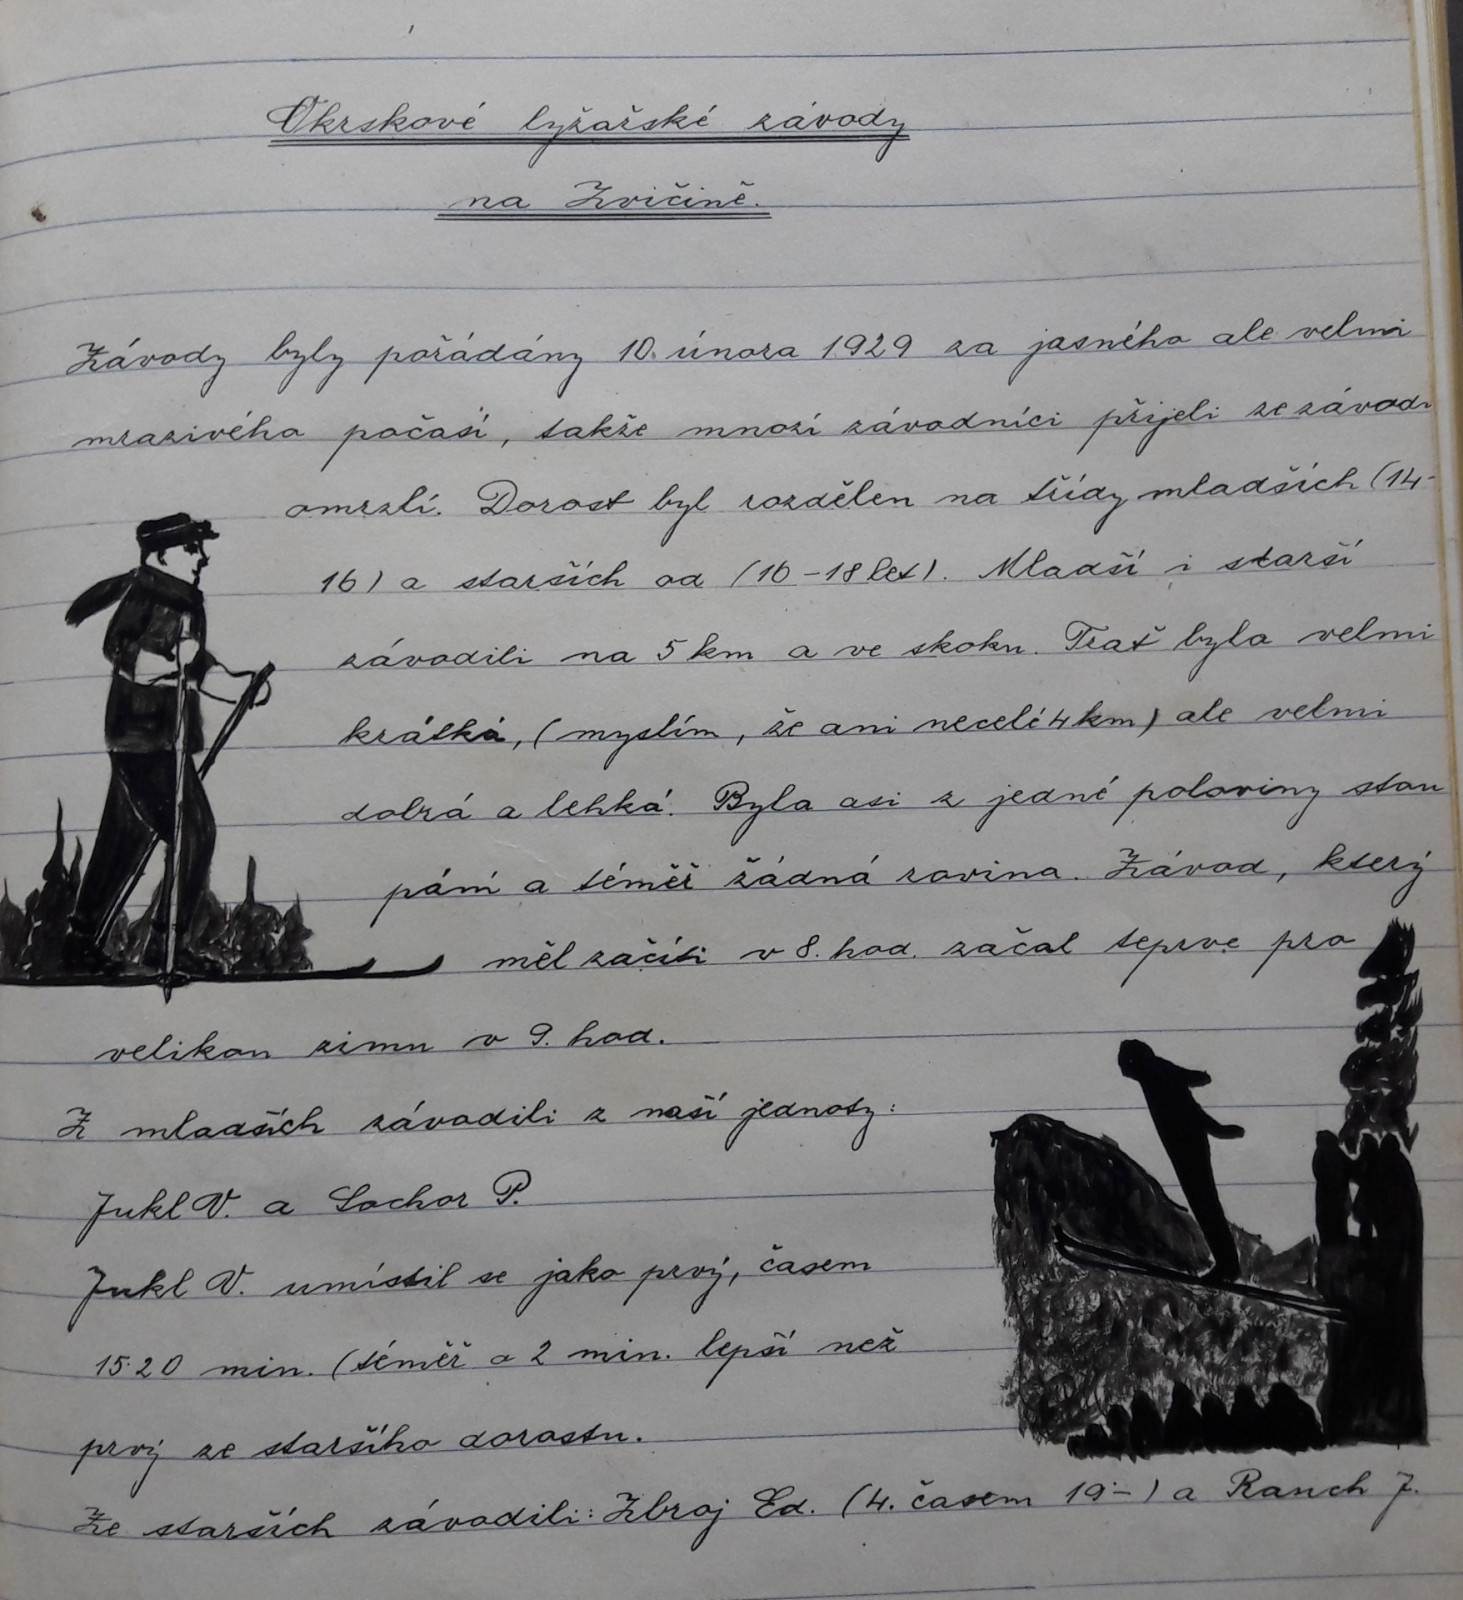 Okrskové lyžařské závody
na Zvičině.
Závody byly pořádány 10. února 1929 za jasného ale velmi
mrazivého počasí, takže mnozí závodníci přijeli ze závodu
omrzlí. Dorost byl rozdělen na třídy mladších (14-
16) a starších od (16-18 let). Mladší i starší
závodili na 5 km a ve skoku. Trať byla velmi
krátká, (myslím, že ani necelé 4 km) ale velmi
dobrá a lehká. Byla asi z jedné poloviny stou
pání a téměř žádná rovina. Závod, který
měl začíti v 8. hod. začal teprve pro
velikou zimu v 9. hod.
Z mladších závodili z naší jednoty:
Jukl V. a Sochor P.
Jukl V. umístil se jako prvý, časem
15·20 min. (téměř o 2 min. lepší než
prvý ze staršího dorostu.
Ze starších závodili: Zbroj Ed. (4. časem 19·-) a Rauch J.